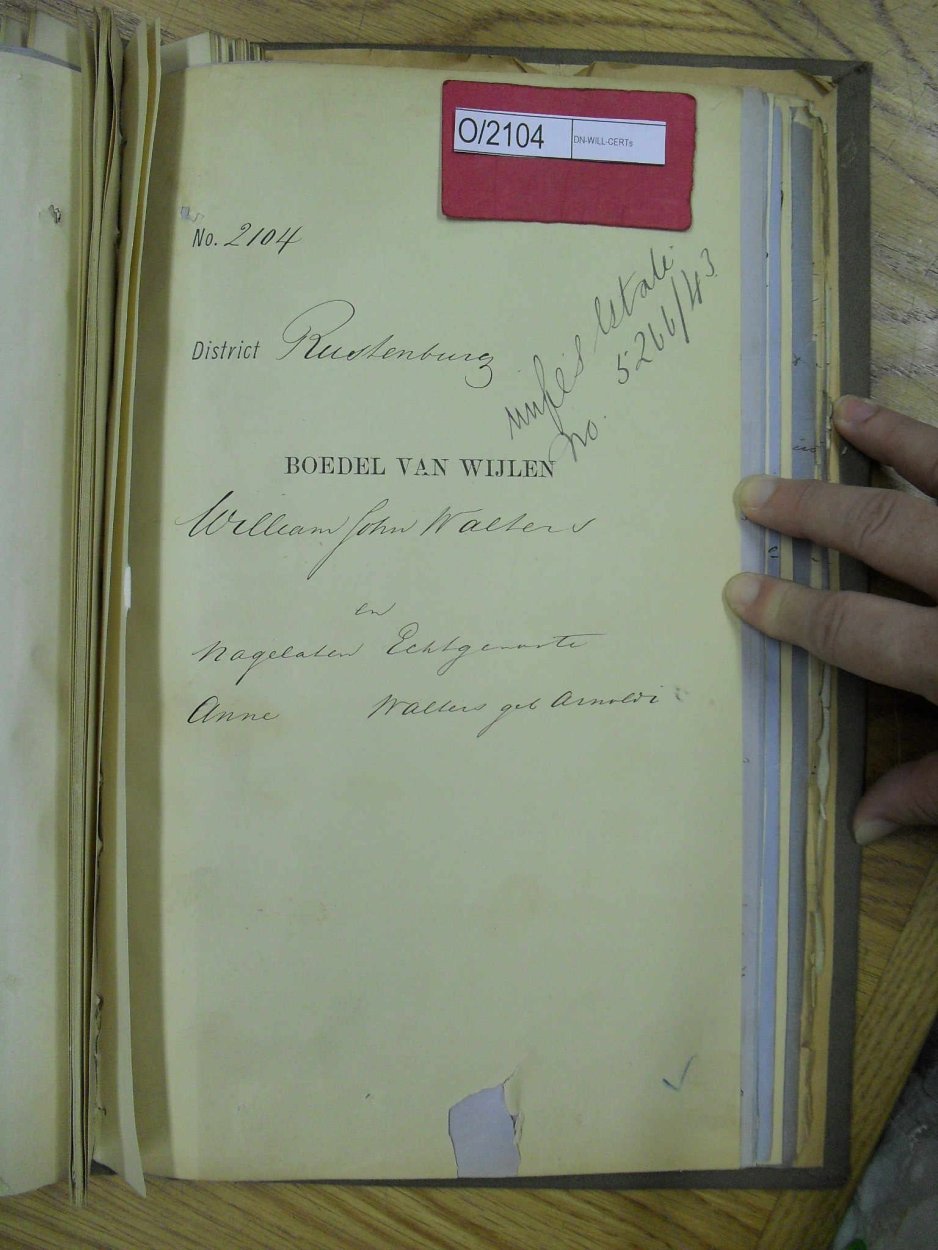 O/2104 DN-WILL-CERTs
No. 2104
wife's Estate
No. 5266/43
District Rustenburg
BOEDEL VAN WIJLEN
William John Walters
en
nagelaten Echtgenoote
Anne Walters geb Arnoldi